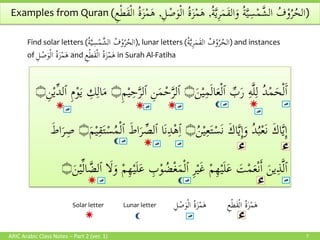 Examples from Quran (الْحُرُوْفُ الشَّمْسِيَّةُ وَالقَمَرِيَّةُ, هَمْزَةُ الْوَصْلِ, هَمْزَةُ الْقَطْعِ)
Find solar letters (الْحُرُوْفُ الشَّمْسِيَّةُ), lunar letters (الْحُرُوْفُ القَمَرِيَّةُ) and instances
of هَمْزَةُ الْوَصْلِ and هَمْزَةُ الْقَطْعِ in Surah Al-Fatiha
اَلْحَمْدُ لِلَّهِ رَبِّ اَلْعَالَمِيْنَ ۝ اَلرَّحْمَنِ اَلرَّحِيْمِ ۝ مَالِكِ يَوْمِ اَلدِّيْنِ ۝
إِيَّاكَ نَعْبُدُ وَإِيَّاكَ نَسْتَعِيْنُ ۝ اِهْدِنَا اَلصِّرَاطَ اَلْمُسْتَقِيْمَ ۝ صِرَاطَ
اَلَّذِينَ أَنْعَمْتَ عَلَيْهِمْ غَيْرِ اَلْمَغْضُوْبِ عَلَيْهِمْ وَلَا اَلضَّآلِّيْنَ ۝
Solar letter Lunar letter هَمْزَةُ الْوَصْلِ هَمْزَةُ الْقَطْعِ
ARIC Arabic Class Notes – Part 2 (ver. 1) 7